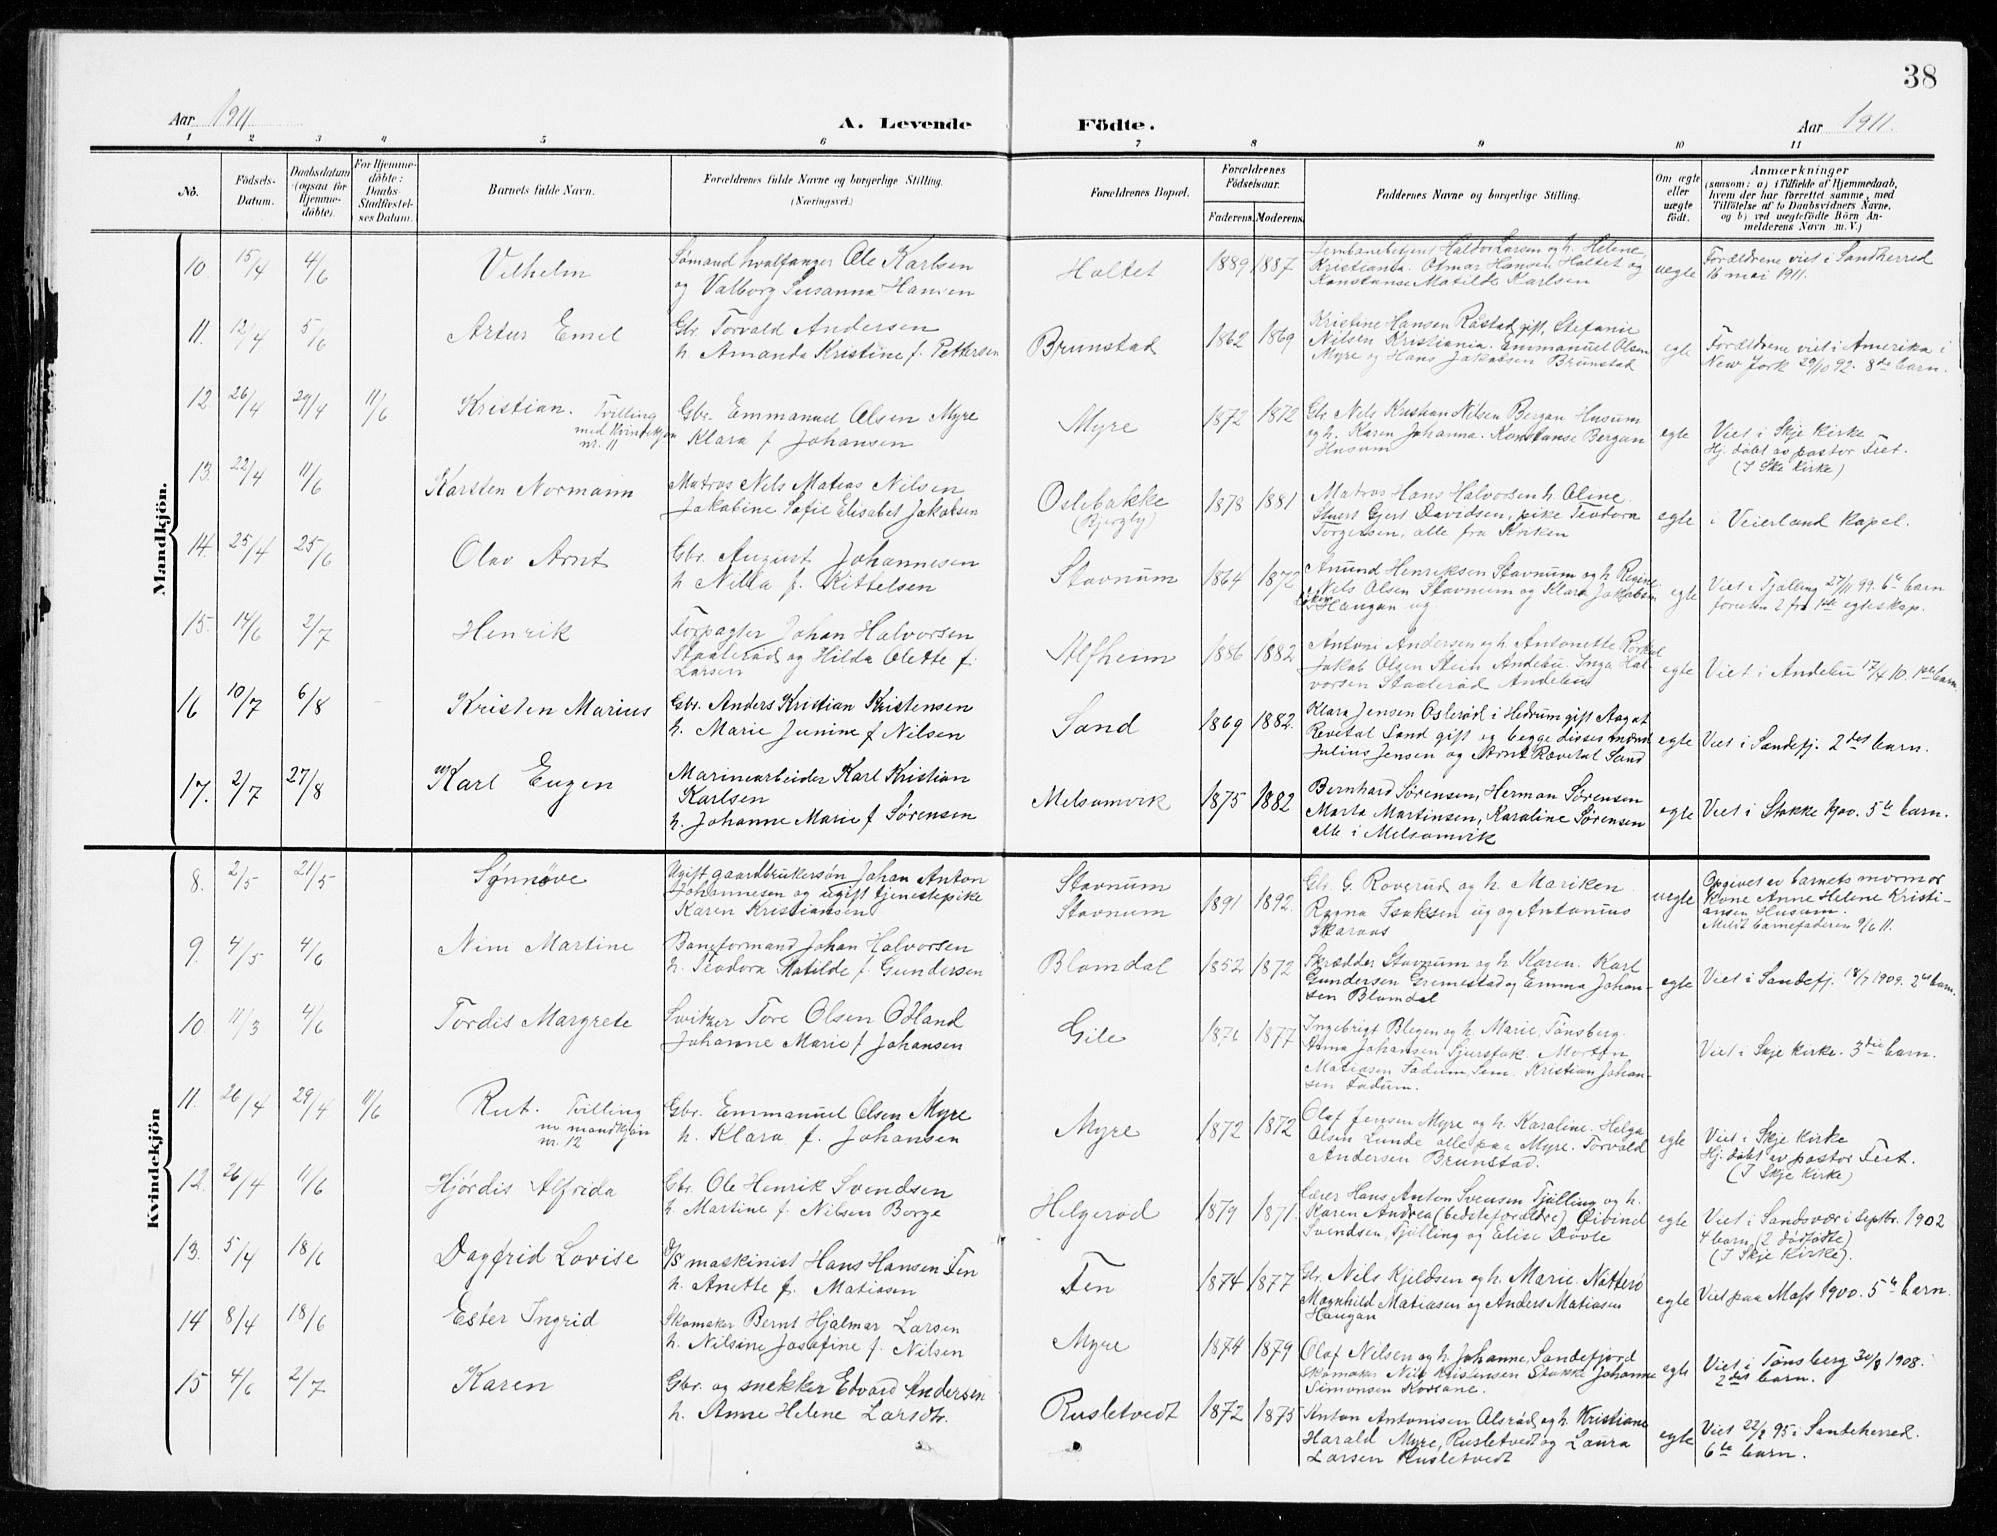 38
Aar 1911. A. Levende Födte. Aar 1911.
1 2 3 4 5 6 7 8 9 10 11
No.
Födsels-
Datum.
Daabsdatum
(ogsaa for
Hjemme-
döbte).
For Hjemme-
döbte:
Daabs-
Stadfæstel-
ses Datum.
Barnets fulde Navn.
Forældrenes fulde Navne og borgerlige Stilling.
(Næringsvei.)
Forældrenes Bopæl.
Forældrenes
Födselsaar.
Faderens. Moderens.
Faddernes Navne og borgerlige Stilling.
Om ægte
eller
uægte
födt.
Anmærkninger
(saasom: a) i Tilfælde af Hjemmedaab,
hvem der har forrettet samme, med
Tilföielse af to Daabsvidners Navne,
og b) ved uægtefödte Börn An-
melderens Navn m. V.)
Mandkjön.
10. 15/4 4/6
Vilhelm
Sømand hvalfanger Ole Karlsen
og Valborg Susanna Hansen
Holtet
1889 1887
Jernbanebetjent Haldor Larsen og h. Helene,
Kristiania. Otmar Hansen Holtet og
Konstanse Matilde Karlsen
uegte
Forældrene viet i Sandherred
16 mai 1911.
11. 12/4 5/6
Artur Emel
Gbr. Torvald Andersen
h. Amanda Kristine f. Pettersen
Brunstad
1862 1869
Kristine Hansen Råstad gift, Stefanie
Nilsen Kristiania. Emmanuel Olsen
Myre og Hans Jakobsen Brunstad
egte
Forældrene viet i Amerika i
New Jork 29/10 92. 8de barn.
12 26/4 29/4 11/6
Kristian. Tvilling
med Kvindekjøn
nr. 11
Gbr. Emmanuel Olsen Myre
Klara f. Johansen
Myre
1872 1872
Gbr. Nels Kristian Nilsen Bergan Husum
og h. Karen Johanna. Konstanse Bergan
Husum
egte
Viet i Skje Kirke
Hj. døbt av pastor Feet.
(I Skje Kirke)
13. 22/4 11/6
Karsten Normann
Matros Nels Matias Nilsen
Jakobine Sofie Elisabet Jakobsen
Oslebakke
(Bjergby)
1878 1881
Matros Hans Halvorsen h. Oline.
Stuert Gjert Davidsen, pike Teodora
Torgersen, alle fra Kriken
egte
i Veierland Kapel.
14. 25/4 25/6
Olav Arnt
Gbr. August Johannesen
h. Nilla f. Kittelsen
Stavnum
1864 1872
Anund Henriksen Stavnum og h. Regine
Nels Olsen Stavnum og Klara Jakobsen
Haugan ug.
egte
Viet i Tjølling 27/11 99. 6te barn
foruten 2 fra 1ste egteskap.
15. 14/6 2/7
Henrik
Forpagter Johan Halvorsen
Staalerød og Hilda Olette f.
Larsen
Alfheim
1886 1882
Antoni Andersen og h. Antonette Rørkol
Jakob Olsen Stein Andebu. Inga Hal-
vorsen Staalerød Andebu
egte
Viet i Andebu 17/4 10. 1ste barn
16 10/7 6/8
Kristen Marius
Gbr. Anders Kristian Kristensen
h. Marie Junine f Nilsen
Sand
1869 1882.
Klara Jensen Oslerød i Hedrum gift Aagat
Revetal Sand gift og begge disses mænd
Julius Jensen og Arnt Rævetal Sand
egte
Viet i Sandefj. 2det barn.
17. 2/7 27/8
Karl Eugen
Marinearbeider Karl Kristian
Karlsen
h. Johanne Marie f Sørensen
Melsomvik
1875 1882
Bernhard Sørensen, Herman Sørensen
Marta Martinsen, Karaline Sørensen
alle i Melsomvik
egte
Viet i Stokke hov. 5te barn.
Kvindekjön
8. 2/5 21/5
Synnøve
Ugift gaardbrukersøn Johan Anton
Johannesen og ugift tjenestepike
Karen Kristiansen
Stavnum
Stavnum
1891 1892.
Gbr. G. Roverud og h. Mariken
Ragna Isaksen ug og Antonius
Skaraas
uegte
Opgivet av barnets mormor
Kone Anne Helene Kristi-
ansen Husum.
Meldt barnefaderen 9/6 11.
9. 4/5 4/6
Nini Martine
Baneformand Johan Halvorsen
h. Teodora Matilde f Gundersen
Blomdal
1852 1872
Skrædder Stavnum og h. Karen. Karl
Gundersen Grimestad og Emma Johan-
sen Blomdal
egte
Viet i Sandefj. 18/7 1909. 2det barn.
10. 11/3 4/6
Tordis Margrete
Sveitzer Tore Olsen Odland
Johanne Marie f Johansen
Gile
1876 1877
Ingebrigt Blegen og h. Marie, Tønsberg.
Anna Johansen Sjurstok. Morten
Matiasen Fadum, Sem. Kristian Johan-
sen Fadum.
Viet i Skje Kirke. 3die barn.
11. 26/4 29/4 11/6
Rut. Tvilling
m mandkjøn
nr. 12
Gbr. Emmanuel Olsen Myre
h. Klara f. Johansen
Myre
1872 1872
Olaf Jensen Myre og h. Karaline. Helga
Olsen Lunde alle paa Myre. Torvald
Andersen Brunstad.
egte
Viet i Skje Kirke
Hj. døbt av pastor Feet.
(I Skje Kirke)
12. 26/4 11/6
Hjørdis Alfrida
Gbr. Ole Henrik Svendsen
h. Martine f. Nilsen Borge
Helgerød
1879 1871.
Lærer Hans Anton Svensen Tjølling og h.
Karen Andrea (bedsteforældre) Øibind
Svendsen, Tjølling og Elise Døvle
egte
Viet i Sandsvær i septbr. 1902
4 barn (2 dødfødte)
(I Skje Kirke).
13. 5/4 18/6
Dagfrid Lovise
D/S maskinist Hans Hansen Fen
h. Anette f. Matiasen
Fen
1874 1877
Gbr. Nils Kjeldsen og h. Marie. Natterø
Magnhild Matiasen og Anders Matiasen
Haugan
egte
Viet paa Moss 1900. 5te barn.
14 8/4 18/6
Ester Ingrid
Skomaker Bernt Hjalmar Larsen
h. Nilsine Josefine f. Nilsen
Myre
1874 1879
Olaf Nilsen og h. Johanne, Sandefjord
Skomaker Nils Kristensen Stokke Johanne
Simonsen Korsane.
egte
Viet i Tønsberg 30/8 1908.
2det barn.
15 4/6 2/7
Karen
Gbr. og snekker Edvard Andersen
h. Anne Helene Larsdtr.
Rusletvedt
1872 1875
Anton Antonisen Alsrød og h. Kristiane
Harald Myre, Rusletvedt og Laura
Larsen Rusletvedt
egte
Viet 22/2 95 i Sandeherred.
6te barn.